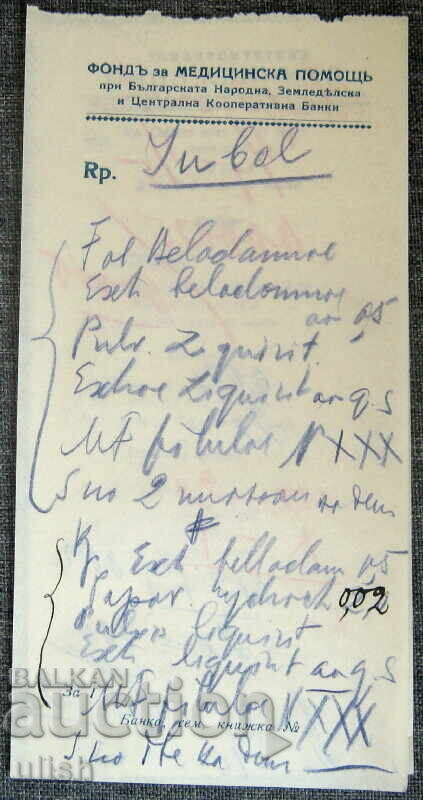 ФОНДЪ за МЕДИЦИНСКА ПОМОЩЬ
при Българската Народна, Земледѣлска
и Централна Кооперативна Банки
Rp.
Fol Beladonnae
Extr beladonnae
aa 0,5
Pulv. Liquirit.
Extrae Liquirit aa q.s
MF pilulae N XXX
S по 2 на ден
#
Rp Extr belladon 0,5
Papav hydroch 0,02
Pulv. liquirit
Extr liquirit aa q.s
За
MF pilulae N XXX
Банка, сем. книжка №
S по на ден
BALKAN
auction
ulish